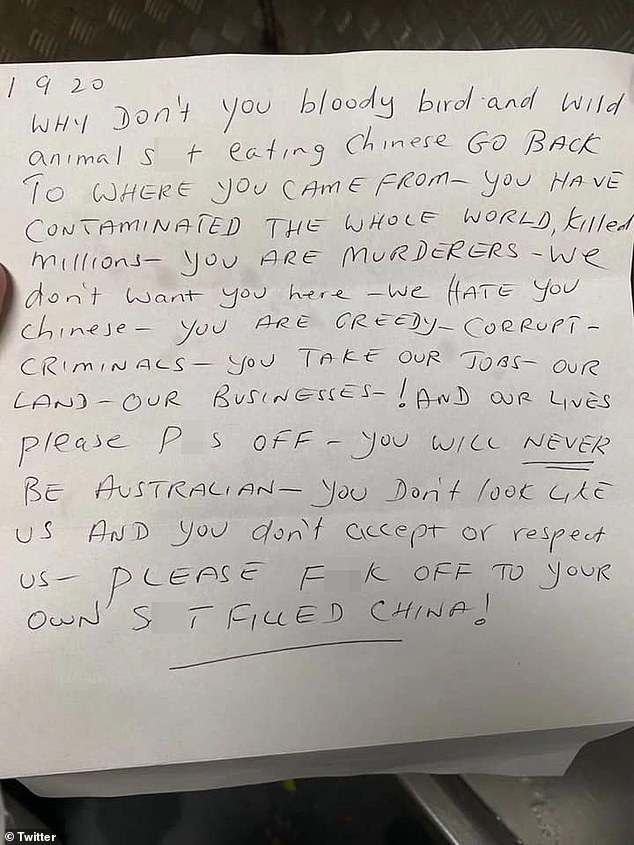 1 9 20
WHY Don't you bloody bird and wild
animal s t eating Chinese GO BACK
TO WHERE YOU CAME FROM- YOU HAVE
CONTAMINATED THE WHOLE WORLD, killed
millions- YOU ARE MURDERERS - We
don't want you here - we HATE YOU
Chinese - YOU ARE GREEDY- CORRUPT -
CRIMINALS - YOU TAKE OUR JOBS- OUR
LAND - OUR BUSINESSES- ! AND OUR LIVES
please P s OFF - YOU WILL NEVER
BE AUSTRALIAN - you Don't look LIKE
US AND you don't accept or respect
us- PLEASE F K OFF TO YOUR
OWN S T FILLED CHINA!
© Twitter